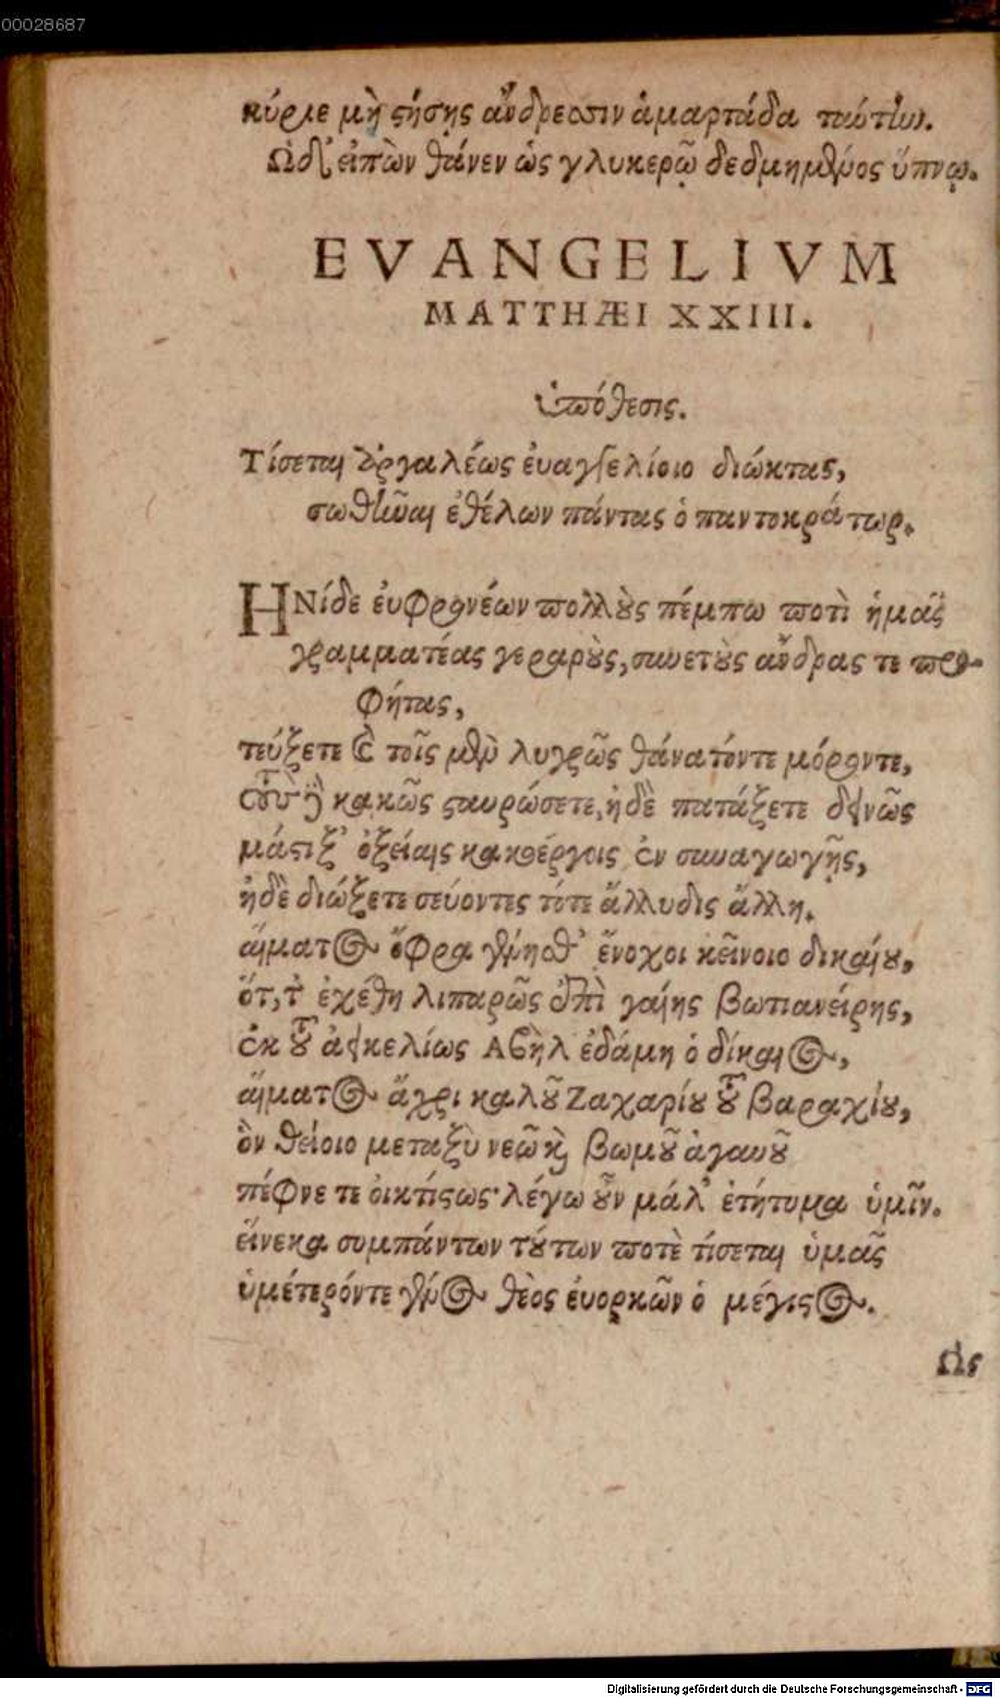 00028687
κύριε μὴ στήσῃς ἄνδρεσσιν ἁμαρτάδα ταύτην.
Ὣδ' εἰπὼν θάνεν ὡς γλυκερῷ δεδμημένος ὕπνῳ.
EVANGELIVM
MATTHÆI XXIII.
ὑπόθεσις.
Τίσεται ἀργαλέως ἐυαγγελίοιο διώκτας,
σωθῆναι ἐθέλων πάντας ὁ παντοκράτωρ.
ΗΝίδε ἐυφρονέων πολλοὺς πέμπω ποτὶ ἡμᾶς
γραμματέας γεραροὺς, συνετοὺς ἄνδρας τε προ-
φήτας,
τεύξετε τοῖς μὲν λυγρῶς θάνατόντε μόροντε,
τοὺς δὲ κακῶς σταυρώσετε, ἠδὲ πατάξετε δεινῶς
μάστιξ' ὀξείαις κακοέργοις ἐν συναγωγῇς,
ἠδὲ διώξετε σεύοντες τότε ἄλλυδις ἄλλῃ.
αἵματος ὄφρα γένησθ' ἔνοχοι κείνοιο δικαίου,
ὅτ,τ' ἐχέθη λιπαρῶς ἐπὶ γαίης βωτιανείρης,
ἐκ τοῦ ἀεικελίως Αβὴλ ἐδάμη ὁ δίκαιος,
αἵματος ἄχρι καλοῦ Ζαχαρίου τοῦ βαραχίου,
ὃν θείοιο μεταξὺ νεῶ καὶ βωμοῦ ἀγαυοῦ
πέφνε τε οἰκτίστως· λέγω οὖν μάλ' ἐτήτυμα ὑμῖν.
εἵνεκα συμπάντων τούτων ποτὲ τίσεται ὑμᾶς
ὑμέτερόντε γένος θεὸς ἐυορκῶν ὁ μέγιστος.
Ὣς
Digitalisierung gefördert durch die Deutsche Forschungsgemeinschaft - DFG